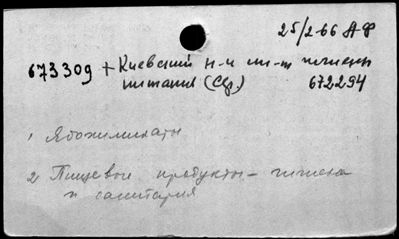 25/2-66 АФ
673309 + Киевский н-и ин-т гигиены
питания (Сб.) 672294
1 Ядохимикаты
2 Пищевые продукты - гигиена
и санитария